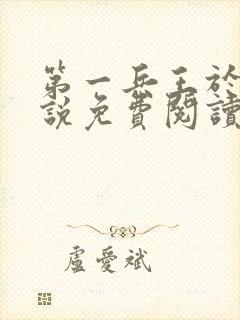 第一兵王於
說免費閱讀
盧愛斌